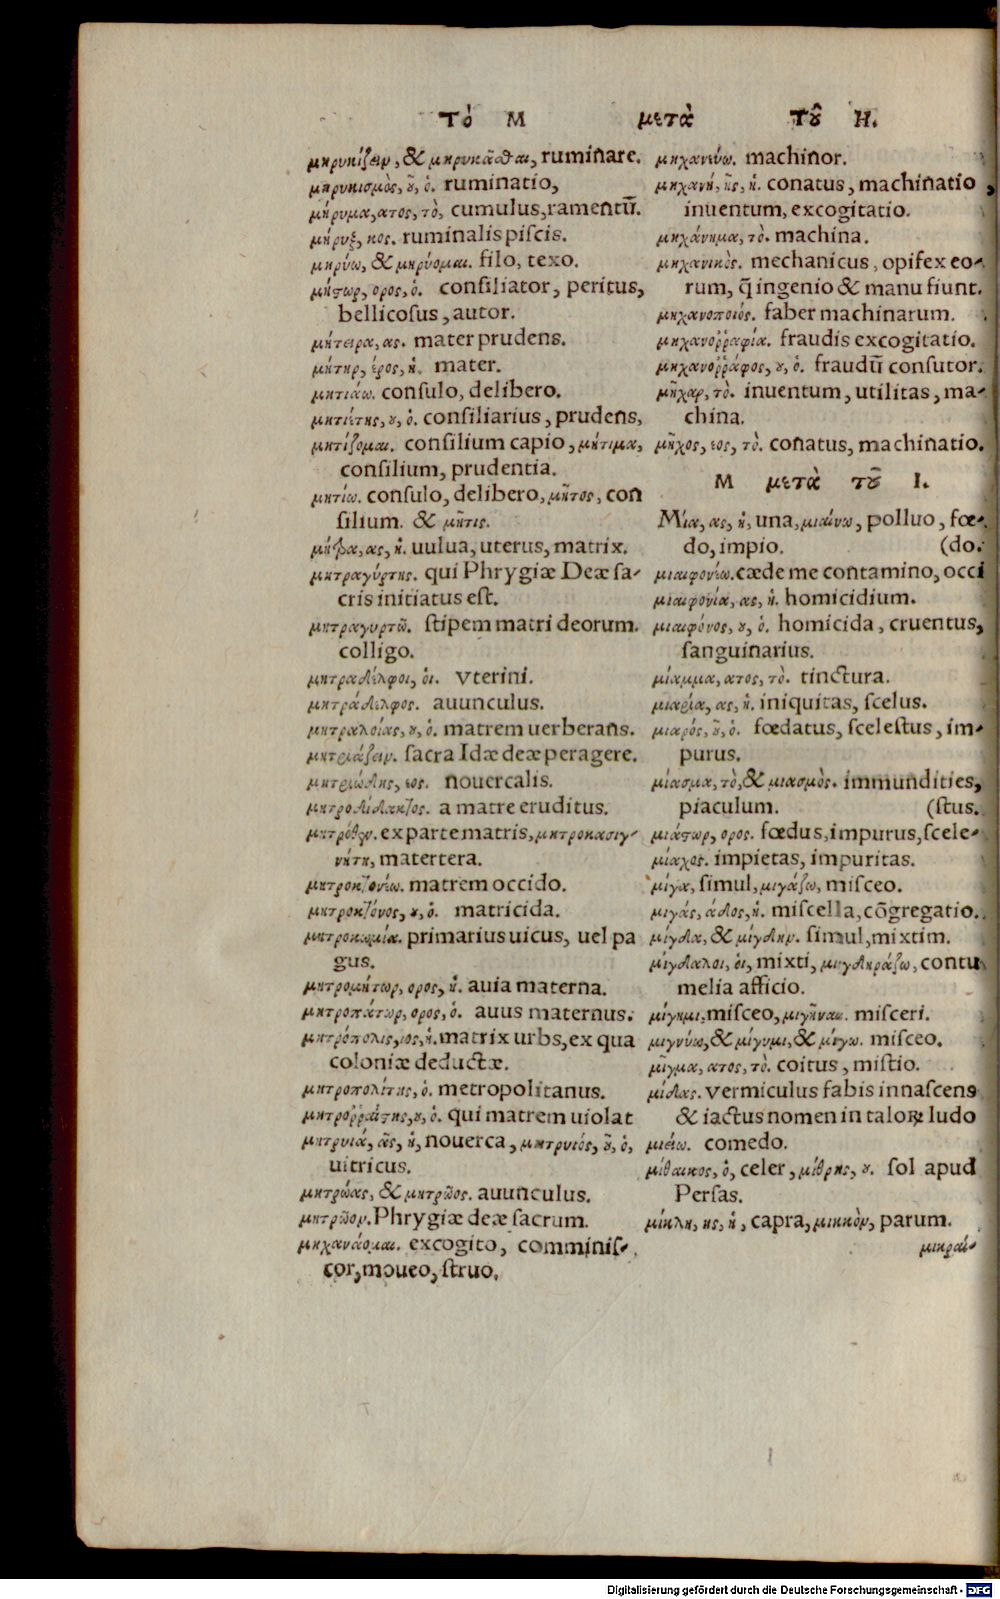 Τὸ Μ μετὰ τοῦ Η.
μηρυκίζειν, & μηρυκᾶσθαι, ruminare.
μηρυκισμὸς, ȣ͂, ὁ. ruminatio,
μήρυμα, ατος, τὸ, cumulus, ramentū.
μήρυξ, κος. ruminalis piscis.
μηρύω, & μηρύομαι. filo, texo.
μήστωρ, ορος, ὁ. consiliator, peritus,
bellicosus, autor.
μήτειρα, ας. mater prudens.
μήτηρ, έρος, ἡ. mater.
μητιάω. consulo, delibero.
μητιέτης, ȣ, ὁ. consiliarius, prudens,
μητίζομαι. consilium capio, μήτιμα,
consilium, prudentia.
μητίω. consulo, delibero, μῆτος, con
silium. & μῆτις.
μήτρα, ας, ἡ. uulua, uterus, matrix.
μητραγύρτης. qui Phrygiæ Deæ sa-
cris initiatus est.
μητραγυρτῶ. stipem matri deorum.
colligo.
μητραδέλφοι, οἱ. vterini.
μητράδελφος. auunculus.
μητραλοίας, ȣ, ὁ. matrem uerberans.
μητριάζειν. sacra Idæ deæ peragere.
μητριώδης, εος. nouercalis.
μητροδίδακτος. a matre eruditus.
μητρόθεν. ex parte matris, μητροκασιγ-
νήτη, matertera.
μητροκτονέω. matrem occido.
μητροκτόνος, ȣ, ὁ. matricida.
μητροκωμία. primarius uicus, uel pa
gus.
μητρομήτωρ, ορος, ἡ. auia materna.
μητροπάτωρ, ορος, ὁ. auus maternus.
μητρόπολις, ιος, ἡ. matrix urbs, ex qua
coloniæ deductæ.
μητροπολίτης, ὁ. metropolitanus.
μητροῤῥαίστης, ȣ, ὁ. qui matrem uiolat
μητρυιά, ᾶς, ἡ, nouerca, μητρυιός, ȣ͂, ὁ,
uitricus.
μητρώας, & μητρῶος. auunculus.
μητρῶον. Phrygiæ deæ sacrum.
μηχανάομαι. excogito, comminis-
cor, moueo, struo.
μηχανεύω. machinor.
μηχανή, ῆς, ἡ. conatus, machinatio,
inuentum, excogitatio.
μηχάνημα, τὸ. machina.
μηχανικὸς. mechanicus, opifex eo-
rum, q̄ ingenio & manu fiunt.
μηχανοποιός. faber machinarum.
μηχανοῤῥαφία. fraudis excogitatio.
μηχανοῤῥάφος, ȣ, ὁ. fraudū consutor.
μῆχαρ, τὸ. inuentum, utilitas, ma-
china.
μῆχος, εος, τὸ. conatus, machinatio.
Μ μετὰ τοῦ Ι.
Μία, ας, ἡ, una, μιαίνω, polluo, fœ-
do, impio. (do.
μιαιφονέω. cæde me contamino, occi
μιαιφονία, ας, ἡ. homicidium.
μιαιφόνος, ȣ, ὁ. homicida, cruentus,
sanguinarius.
μίαμμα, ατος, τὸ. tinctura.
μιαρία, ας, ἡ. iniquitas, scelus.
μιαρός, ȣ͂, ὁ. fœdatus, scelestus, im-
purus.
μίασμα, τὸ, & μιασμὸς. immundities,
piaculum. (stus.
μιάστωρ, ορος. fœdus, impurus, scele-
μίαχος. impietas, impuritas.
μίγα, simul, μιγάζω, misceo.
μιγάς, άδος, ἡ. miscella, cōgregatio.
μίγδα, & μίγδην. simul, mixtim.
μίγδαλοι, οἱ, mixti, μιγδηράζω, contu
melia afficio.
μίγημι, misceo, μιγῆναι. misceri.
μιγνύω, & μίγνυμι, & μίγω. misceo.
μῖγμα, ατος, τὸ. coitus, mistio.
μίδας. vermiculus fabis innascens
& iactus nomen in taloꝝ ludo
μιέω. comedo.
μίθαικος, ὁ, celer, μίθρης, ȣ. sol apud
Persas.
μίκλη, ης, ἡ, capra, μικκὸν, parum.
μικραί-
Digitalisierung gefördert durch die Deutsche Forschungsgemeinschaft - DFG